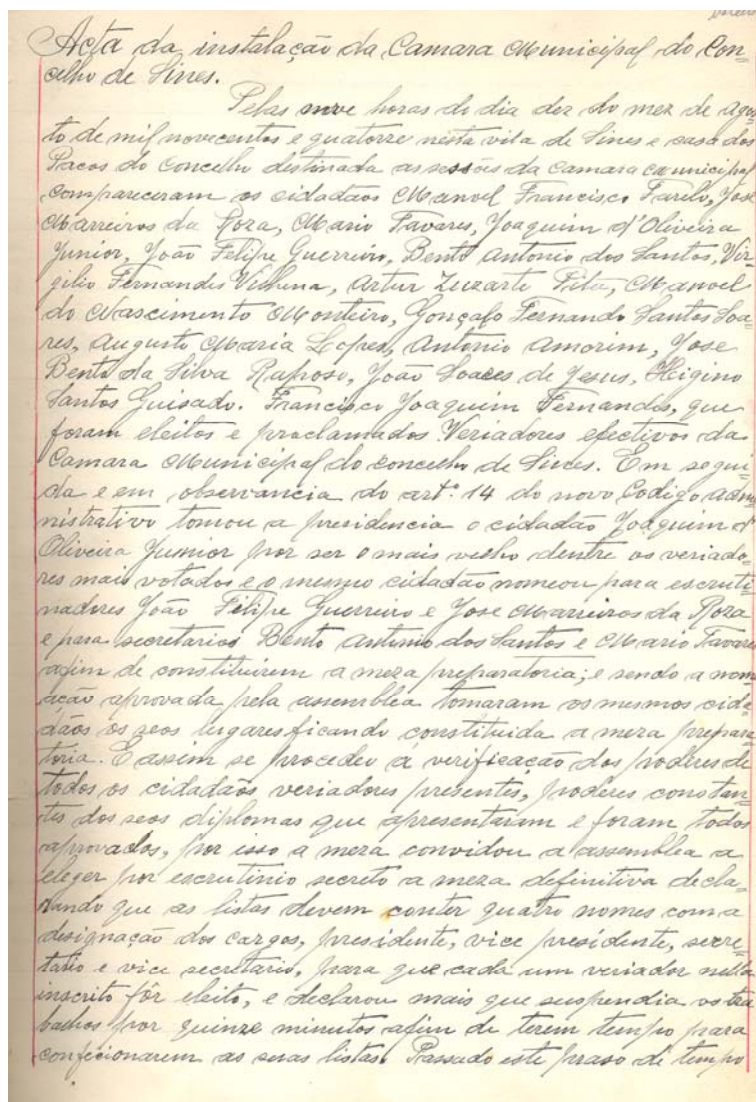 Acta da instalação da Camara Municipal do Con=
celho de Sines.
Pelas nove horas do dia dez do mez de Agos
to de mil novecentos e quatorze nesta vila de Sines e casa dos
Pacos do Concelho destinada as sessões da Camara Municipal
compareceram os cidadãos Manoel Francisco Farelo, José
Marreiros da Roza, Mario Tavares, Joaquim d'Oliveira
Junior, João Felipe Guerreiro, Bento Antonio dos Santos, Vir=
gilio Fernandes Vilhena, Artur Zuzarte Pita, Manoel
do Nascimento Monteiro, Gonçalo Fernando Santos Soa=
res, Augusto Maria Lopes, Antonio Amorim, Jose
Bento da Silva Raposo, João Soares de Jesus, Higino
Santos Guisado. Francisco Joaquim Fernandes, que
foram eleitos e proclamados Veriadores efectivos da
Camara Municipal do concelho de Sines. Em segui=
da e em observancia do artº. 14 do novo Codigo admi
nistrativo tomou a presidencia o cidadão Joaquim d'
Oliveira Junior por ser o mais velho dentre os veriado=
res mais votados e o mesmo cidadão nomeou para escruti=
nadores João Filipe Guerreiro e Jose Marreiros da Roza
e para secretarios Bento Antonio dos Santos e Mario Tavares
afim de constituirem a meza preparatoria; e sendo a nome
ação aprovada pela assemblea tomaram os mesmos cida
dãos os seos lugares ficando constituida a meza prepara
toria. E assim se procedeu á verificação dos poderes de
todos os cidadãos veriadores presentes, poderes constan=
tes dos seos diplomas que apresentaram e foram todos
aprovados, por isso a meza convidou a assemblea a
eleger por escrutinio secreto a meza definitiva decla=
rando que as listas devem conter quatro nomes com a
designação dos cargos, presidente, vice presidente, secre=
tario e vice secretario, para que cada um veriador nella
inscrito fôr eleito, e declarou mais que suspendia os tra
balhos por quinze minutos afim de terem tempo para
confecionarem as suas listas. Passado este praso de tempo